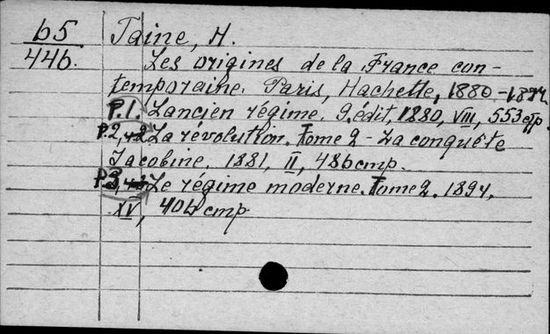 65
446.
Taine, H.
Les origines de la France con-
temporaine. Paris, Hachette, 1880-1894
P.1. L'ancien régime. 9.édit, 1880, VIII, 553 стр.
P.2, т2 La révolution. Tome 2 - La conquête
Jacobine. 1881, II, 486 стр.
P.3, Le régime moderne. Tome 2. 1894,
XV, 406 стр.